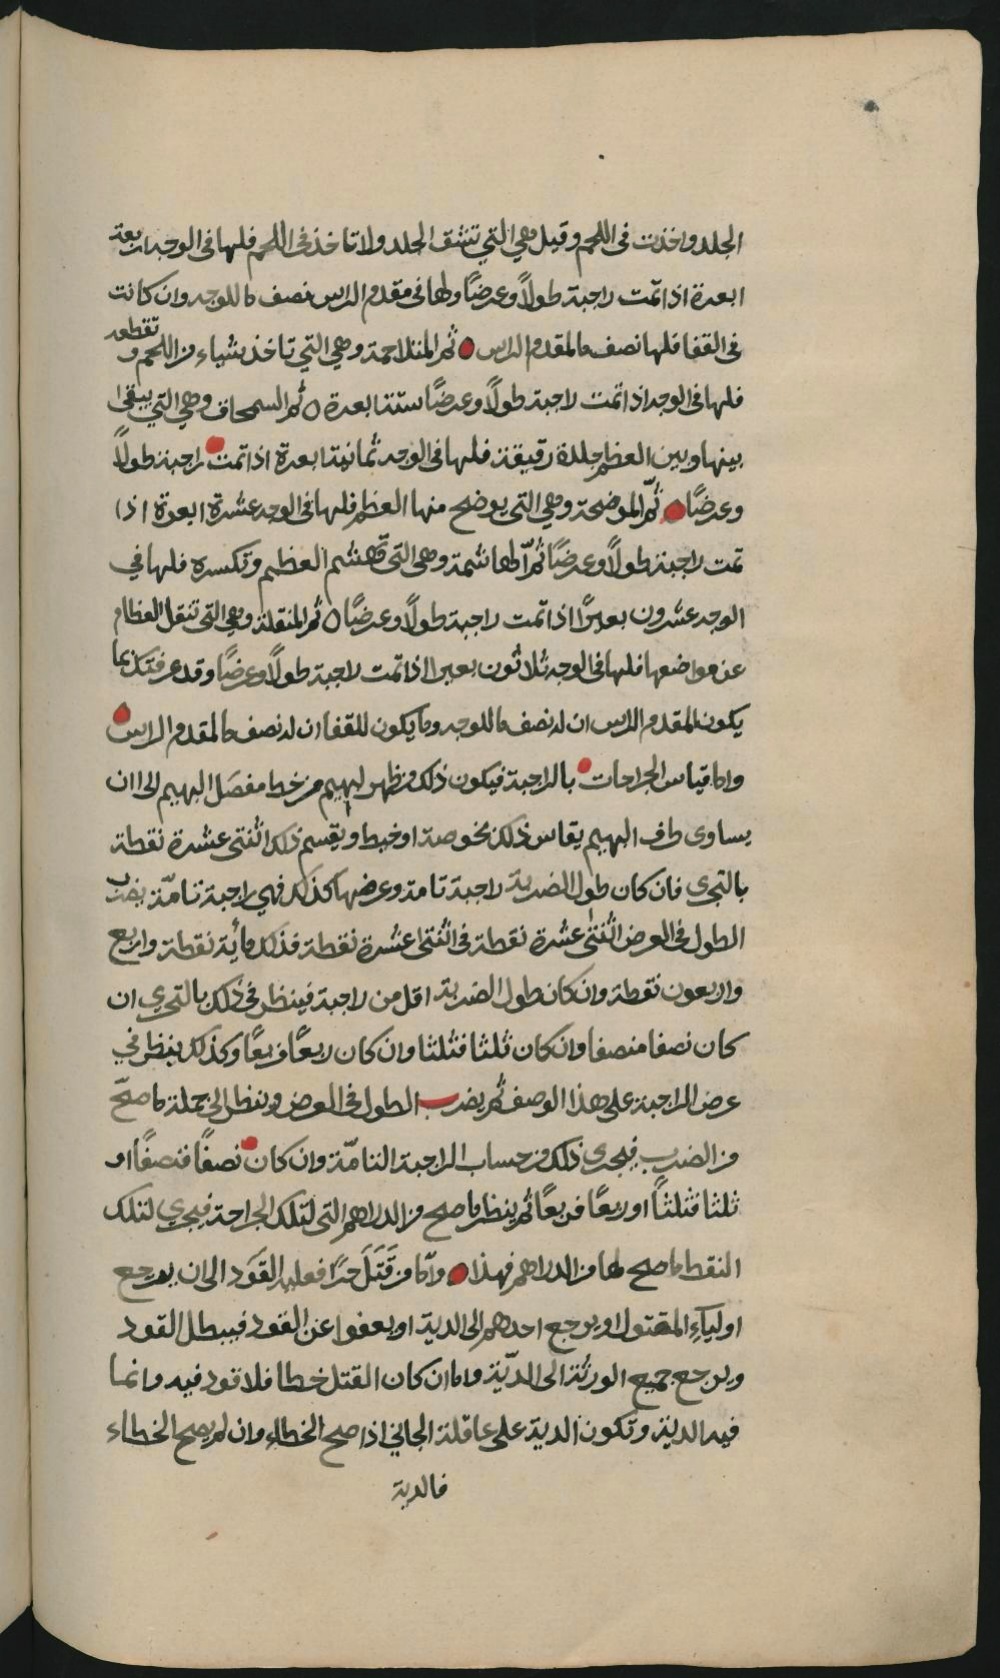 الجلد واخذت فى اللحم وقيل وهي التي تشق الجلد ولا تاخذ فى اللحم فلها فى الوجه اربعة
ابعرة اذا تمت راجبة طولاً وعرضًا ولها فى مقدم الراس نصف ما للوجه وان كانت
فى القفا فلها نصف ما لمقدم الراس ثم المتلاحمة وهي التي تاخذ بشياء من اللحم وتقطعه
فلها فى الوجه اذا تمت راجبة طولاً وعرضًا ستة ابعرة ثم السمحاق وهي التي يبقى
بينها وبين العظم جلدة رقيقة فلها فى الوجه ثمانية ابعرة اذا تمت راجبة طولاً
وعرضًا ثمّ الموضحة وهي التى يوضح منها العظم فلها فى الوجه عشرة ابعرة اذا
تمت راجبة طولاً وعرضًا ثمّ الهاشمة وهى التى تهشم العظم وتكسره فلها في
الوجه عشرون بعيرًا اذا تمت راجبة طولاً وعرضًا ثم المنقلة وهي التى تنقل العظام
عن مواضعها فلها فى الوجه ثلاثون بعيرا اذا تمت راجبة طولاً وعرضًا وقد عرفتك بما
يكون لمقدم الراس ان له نصف ما للوجه وما يكون للقفا ان له نصف ما لمقدم الراس
واما قياس الجراحات بالراجبة فيكون ذلك من ظهر ابهيم من خط مفصل البهيم الى ان
يساوى طرف البهيم يقاس ذلك بخوصة او خيط ويقسم ذلك اثنتى عشرة نقطة
بالتجرى فان كان طول الضربة راجبة تامة وعرضها كذلك فهي راجبة تامّة يضرب
الطول فى العرض اثنتى عشرة نقطة فى اثنتى عشرة نقطة فذلك مأية نقطة واربع
واربعون نقطة وان كان طول الضربة اقل من راجبة فينظر فى ذلك بالتحري ان
كان نصفا فنصفا وان كان ثلثا فثلثا وان كان ربعًا فربعًا وكذلك ينظر في
عرض الراجبة على هذا الوصف ثم يضرب الطول فى العرض وينظر الى جملة ما صحّ
من الضرب فيجرى ذلك من حساب الراجبة التامّة وان كان نصفًا فنصفًا او
ثلثا فثلثاً او ربعًا فربعًا ثم ينظر ما صح من الدراهم التى لتلك الجراحة فيجري لتلك
النقط ما صح لها من الدراهم فهذا وامّا من قَتَلَ حرًا فعليه القَوَد الى ان يرجع
اولياء المقتول او يرجع احدهم الى الدية او يعفوا عن القود فيبطل القود
ويرجع جميع الورثة الى الديّة واما ان كان القتل خطا فلا قود فيه وانما
فيه الدية وتكون الدية على عاقلة الجاني اذا صح الخطاء وان لم يصح الخطاء
فالدية